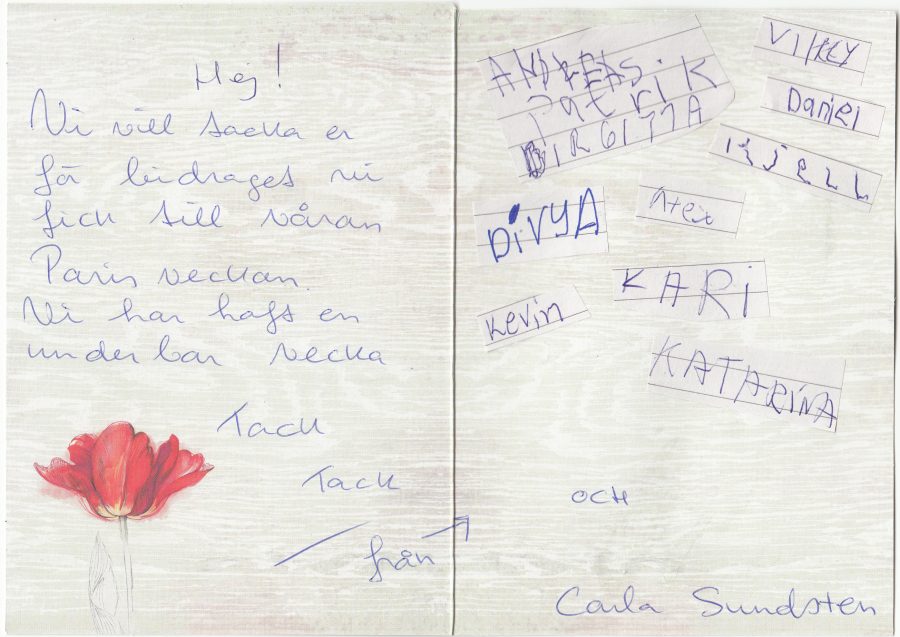 Hej!
Vi vill tacka er
för bidraget ni
fick till våran
Paris veckan.
Vi har haft en
underbar vecka
Tack
Tack
från
ANDREAS
Patrik
BIRGITTA
VIKKY
Daniel
KJELL
DiVYA
KARi
Kevin
KATARiNA
OCH
Carla Sundsten